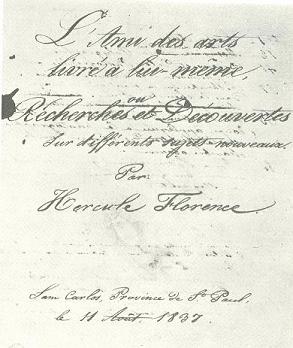 L'Ami des arts
livré à lui-même,
ou
Recherches et Découvertes
Sur différents sujets nouveaux.
Par
Hercule Florence.
Sam Carlos, Province de St Paul,
le 11 Août 1837.